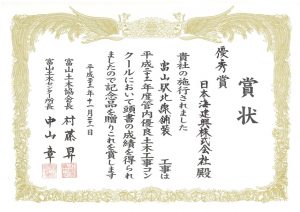 賞状
優秀賞
日本海建興株式会社殿
貴社の施行されました
富山駅北泉舗装 工事は
平成二十二年度管内優良土木工事コン
クールにおいて頭書の成績を得られ
ましたので記念品を贈りこれを賞します
平成二十二年十一月二十一日
富山土木協会長 村藤昇
富山土木センター所長 中山章